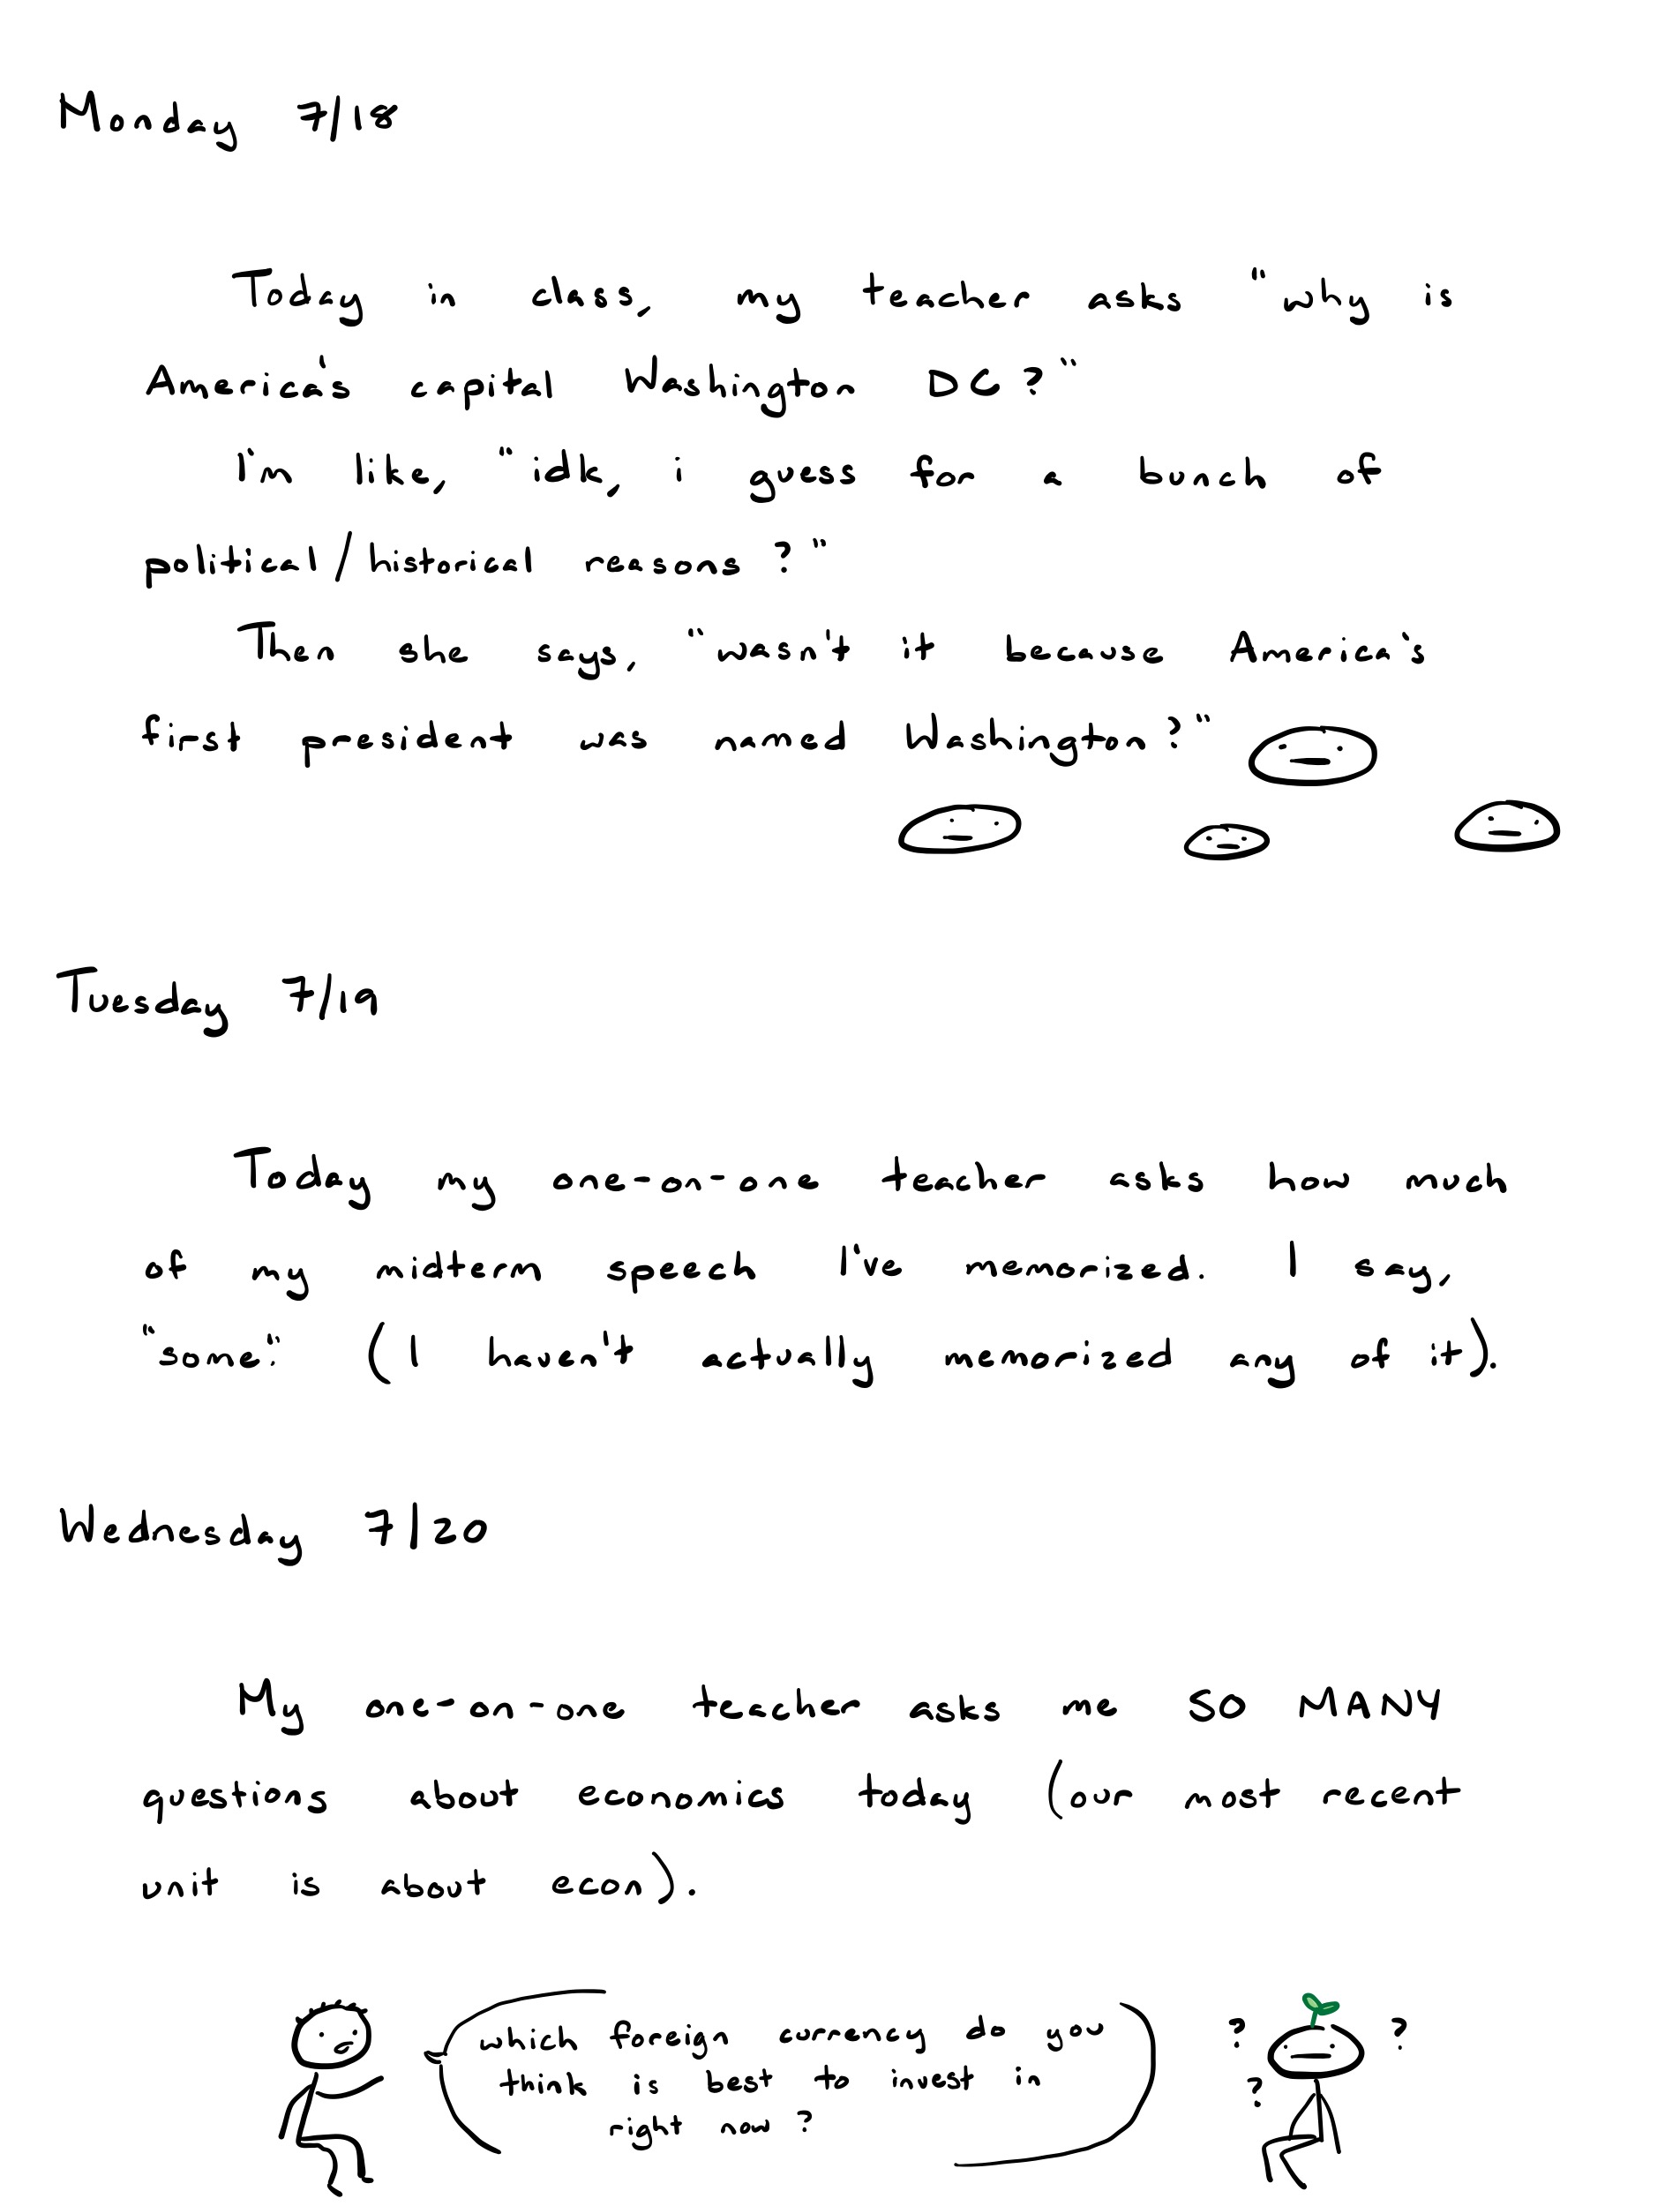 Monday 7/18
Today in class, my teacher asks "why is
America's capital Washington DC?"
I'm like, "idk, i guess for a bunch of
political/historical reasons?"
Then she says, "wasn't it because America's
first president was named Washington?"
Tuesday 7/19
Today my one-on-one teacher asks how much
of my midterm speech I've memorized. I say,
"some." (I haven't actually memorized any of it).
Wednesday 7/20
My one-on-one teacher asks me SO MANY
questions about economics today (our most recent
unit is about econ).
which foreign currency do you
think is best to invest in
right now?
? ?
?